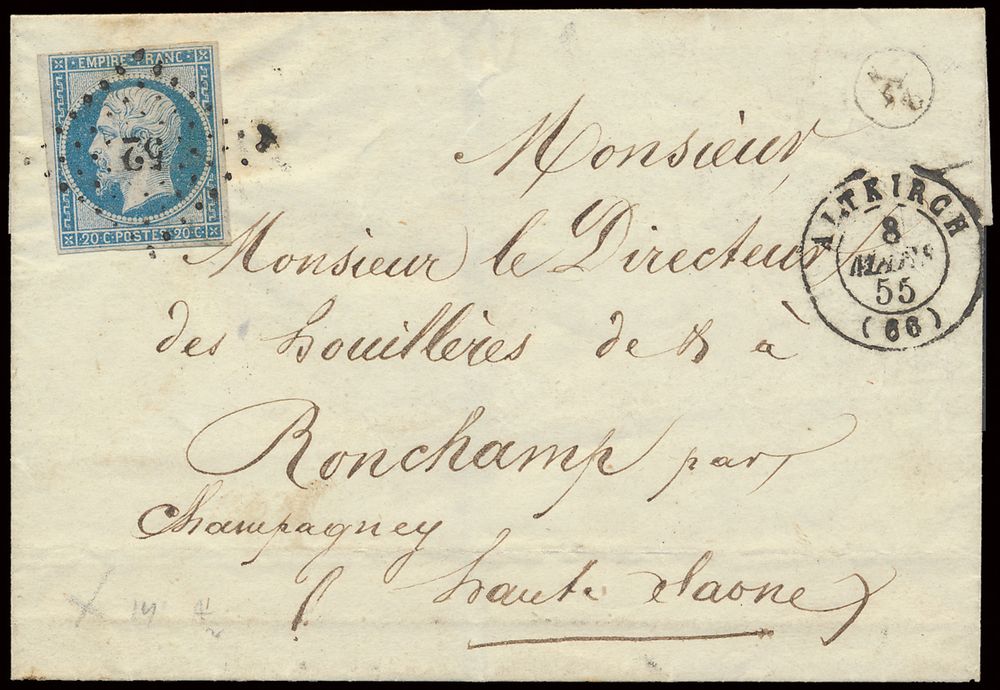 EMPIRE FRANC
52
20 · C · POSTES · 20 · C
ALTKIRCH
8
MARS
55
(66)
Monsieur,
Monsieur le Directeur
des houillères de & à
Ronchamp par
Champagney
haute Saone